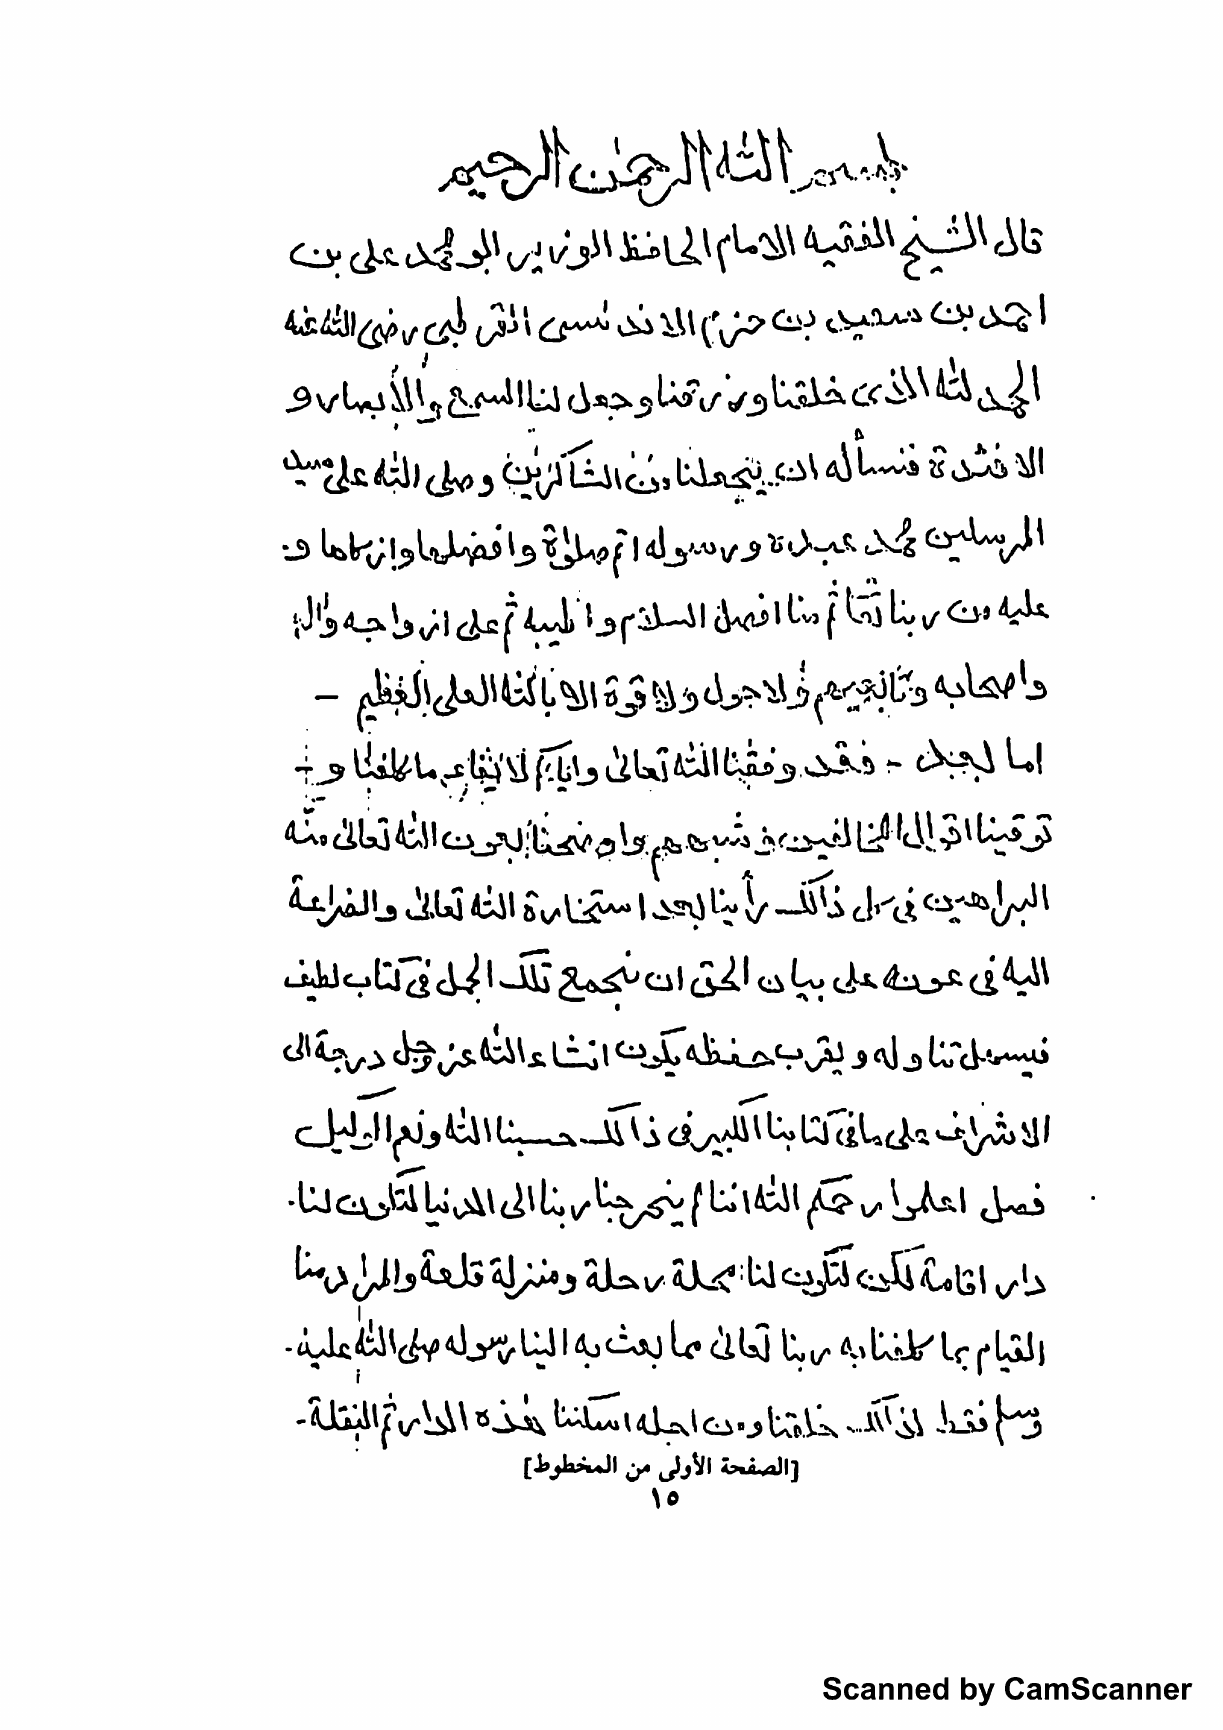 بسم الله الرحمن الرحيم
قال الشيخ الفقيه الامام الحافظ الوزير ابو محمد على بن
احمد بن سعيد بن حزم الاندلسى القرطبى رضى الله عنه
الحمد لله الذى خلقنا ورزقنا وجعل لنا السمع والأبصار و
الافئدة فنسأله ان يجعلنا من الشاكرين وصلى الله على سيد
المرسلين محمد عبده ورسوله اتم صلوة وافضلها وازكاها و
عليه من ربنا تعالى ثم منا افضل السلام واطيبه ثم على ازواجه واله
واصحابه وتابعيهم ولا حول ولا قوة الا بالله العلى العظيم -
اما بعد - فقد وفقنا الله تعالى واياكم لما كلفنا و
توقينا اقوال المخالفين وشبههم واوضحنا بعون الله تعالى ومنه
البراهين فى كل ذالك رأينا بعد استخارة الله تعالى والضراعة
اليه فى عونه على بيان الحق ان نجمع تلك الجمل فى كتاب لطيف
فيسهل تناوله ويقرب حفظه يكون انشاء الله عز وجل درجة الى
الاشراف على ما فى كتابنا الكبير فى ذالك حسبنا الله ونعم الوكيل
فصل اعلموا رحمكم الله اننا لم يخرجنا ربنا الى الدنيا لتكون لنا
دار اقامة لكن لتكون لنا محلة رحلة ومنزلة قلعة والمراد منا
القيام بما كلفنا به ربنا تعالى مما بعث به الينا رسوله صلى الله عليه
وسلم فقط لذالك خلقنا ومن اجله اسكننا هذه الدار ثم النقلة
[الصفحة الأولى من المخطوط]
١٥
Scanned by CamScanner